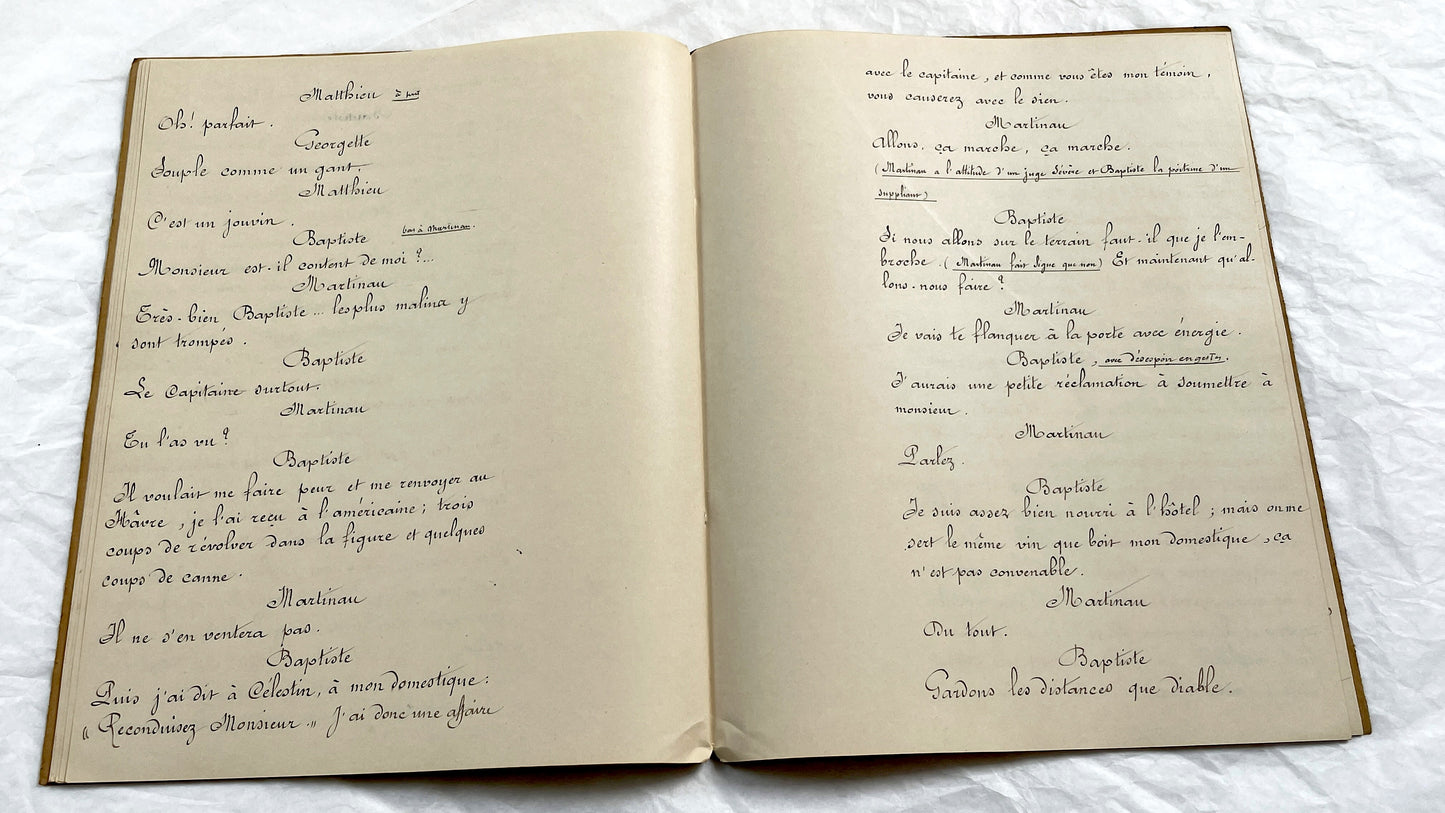 Matthieu à part
Oh! parfait.
Georgette
Souple comme un gant.
Matthieu
C'est un jouvin.
Baptiste bas à Martinau.
Monsieur est-il content de moi ?...
Martinau
Très-bien, Baptiste... les plus malins y
sont trompés.
Baptiste
Le Capitaine surtout.
Martinau
Tu l'as vu ?
Baptiste
Il voulait me faire peur et me renvoyer au
Hâvre, je l'ai reçu à l'américaine ; trois
coups de révolver dans la figure et quelques
coups de canne.
Martinau
Il ne s'en ventera pas.
Baptiste
Puis j'ai dit à Célestin, à mon domestique :
« Reconduisez Monsieur. » J'ai donc une affaire
avec le capitaine, et comme vous êtes mon témoin,
vous causerez avec le sien.
Martinau
Allons, ça marche, ça marche.
(Martinau a l'attitude d'un juge sévère et Baptiste la postime d'un
suppliant)
Baptiste
Si nous allons sur le terrain faut-il que je l'em-
broche. (Martinau fait signe que non) Et maintenant qu'al-
lons-nous faire ?
Martinau
Je vais te flanquer à la porte avec énergie.
Baptiste, avec désespoir en gestes.
J'aurais une petite réclamation à soumettre à
monsieur.
Martinau
Parlez.
Baptiste
Je suis assez bien nourri à l'hôtel ; mais on me
sert le même vin que boit mon domestique, ça
n'est pas convenable.
Martinau
Du tout.
Baptiste
Gardons les distances que diable.